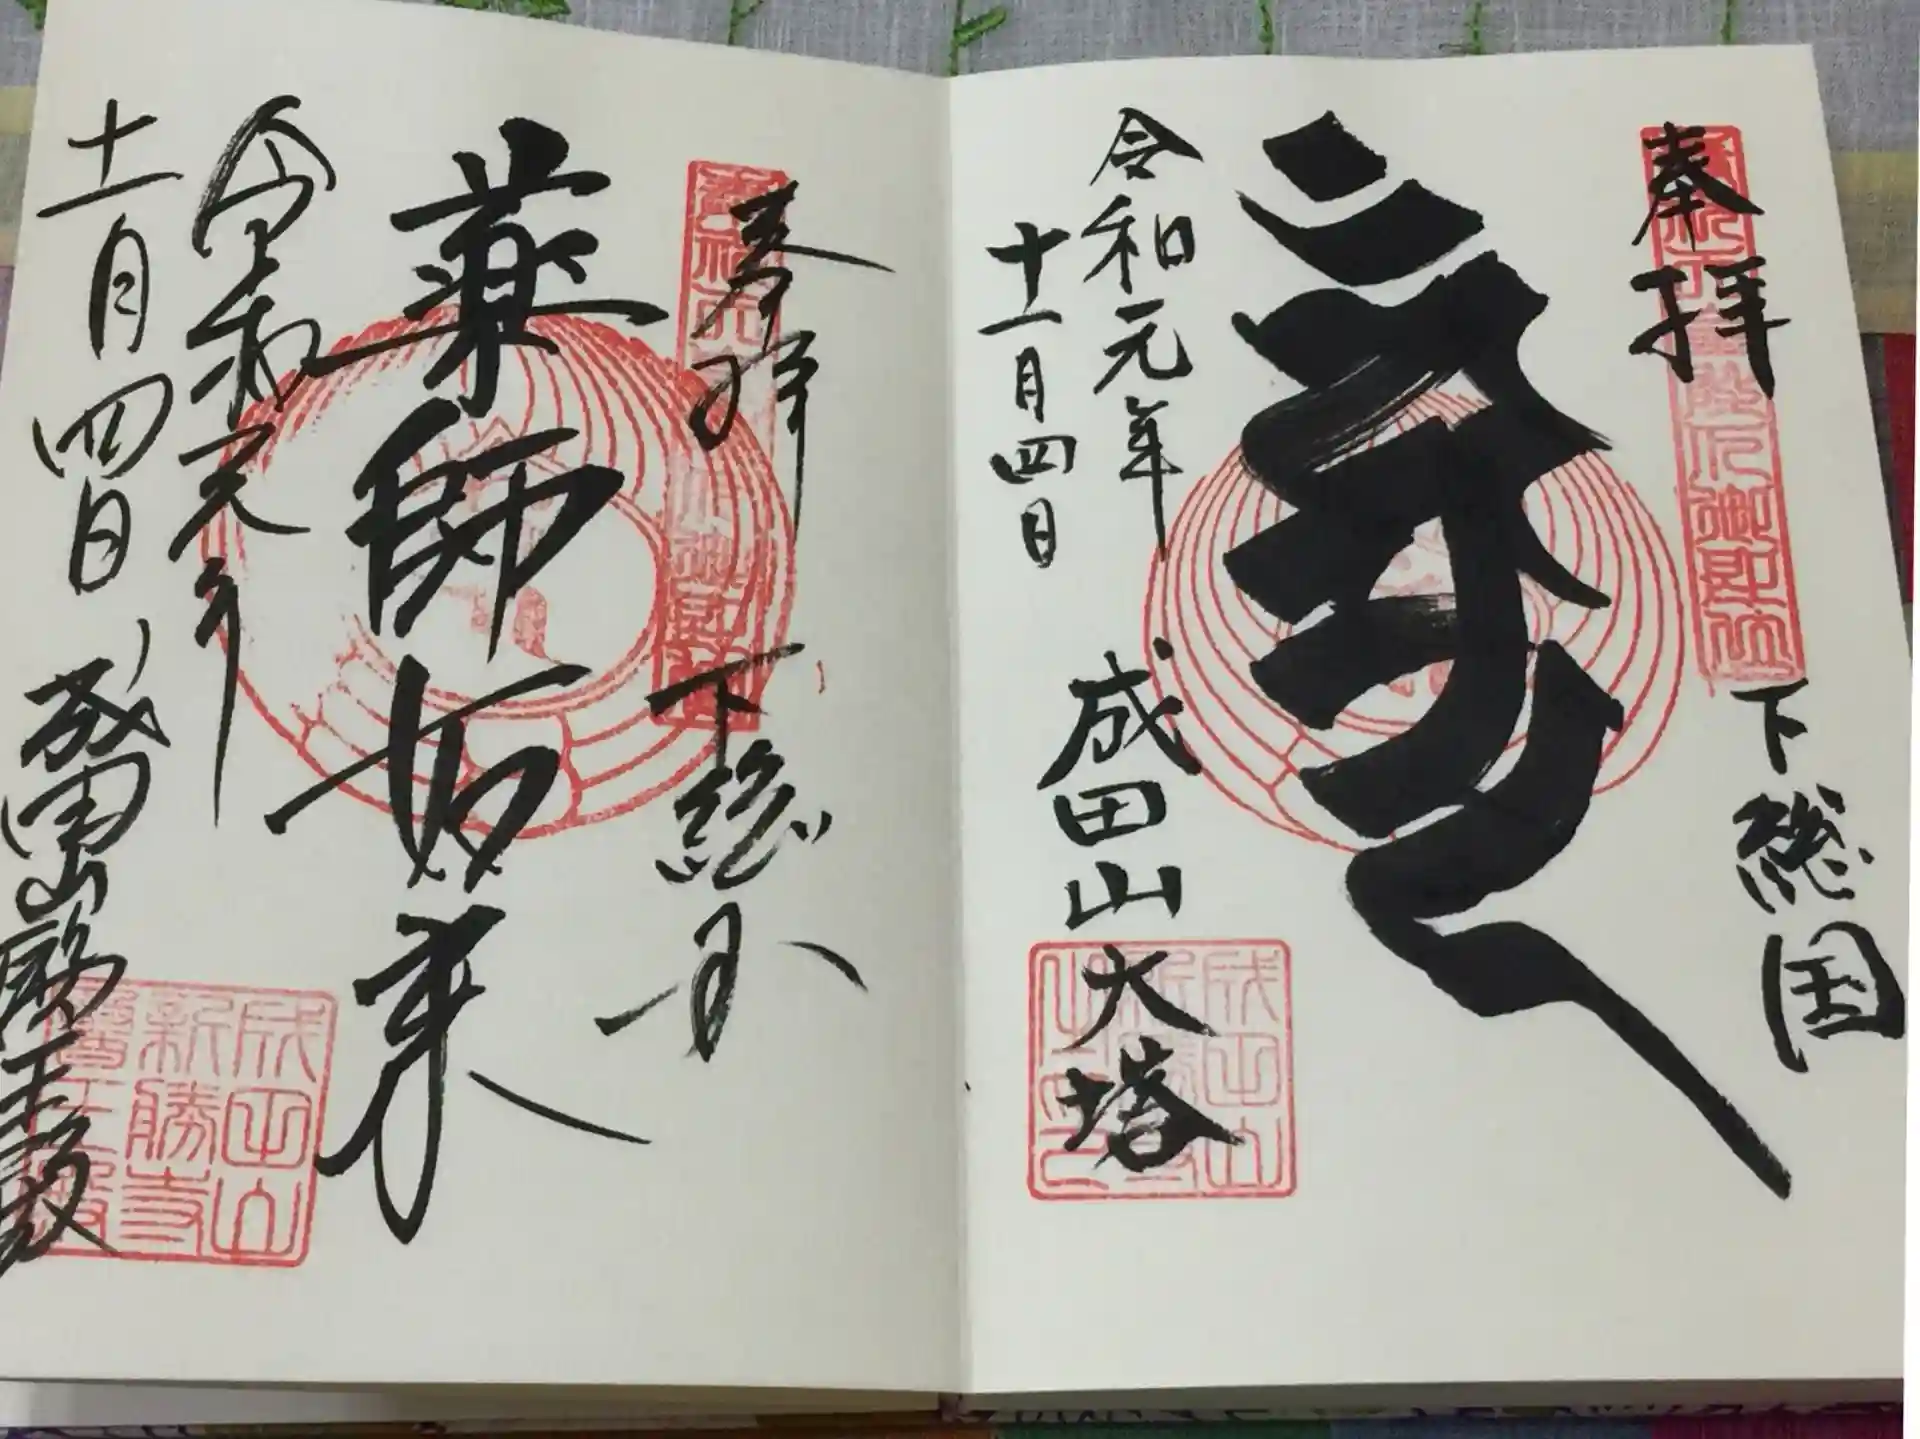 奉拝
下総国
令和元年
十一月四日
成田山大塔
成田山
新勝寺
奉拝
下総国
薬師如来
令和元年
十一月四日
成田山醫王殿
成田山
新勝寺
醫王殿